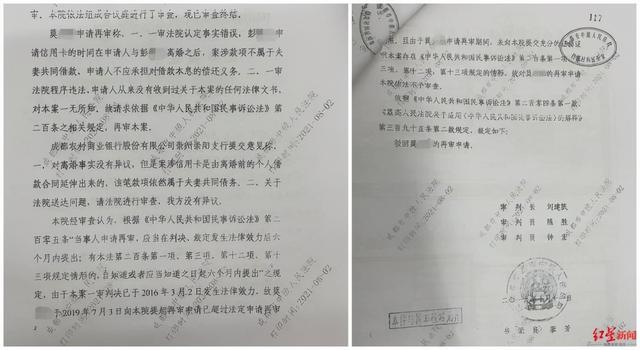 审，本院依法组成合议庭进行了审查，现已审查终结。
莫 申请再审称，一、一审法院认定事实错误，彭
请信用卡的时间在申请人与彭 离婚之后，案涉款项不属于夫
妻共同借款，申请人不应承担对借款本息的偿还义务；二、一审
法院程序违法，申请人从来没有收到过关于本案的任何法律文书，
对本案一无所知，故请求依据《中华人民共和国民事诉讼法》第
二百条之相关规定，再审本案。
成都农村商业银行股份有限公司崇州崇阳支行提交意见称，
一、对离婚事实没有异议，但是案涉信用卡是由离婚前的个人借
款合同延伸出来的，该笔款项依然属于夫妻共同债务。二、关于
法院送达问题，请法院进行审查，我方没有异议。
本院经审查认为，根据《中华人民共和国民事诉讼法》第二
百零五条“当事人申请再审，应当在判决、裁定发生法律效力后六
个月内提出；有本法第二百条第一项、第三项、第十二项、第十
三项规定情形的，自知道或者应当知道之日起六个月内提出”之规
定，由于本案一审判决已于2016年3月2日发生法律效力，故莫
于2019年7月3日向本院提起再审申请已超过法定申请再审
117
，且由于莫 申请再审期间，未向本院提交充分的证据证
本案存在《中华人民共和国民事诉讼法》第二百条第一项、
三项、第十二项、第十三项规定的情形，故对莫 的再审申请
本院依法不予审查。
依据《中华人民共和国民事诉讼法》第二百零四条第一款、
《最高人民法院关于适用〈中华人民共和国民事诉讼法〉的解释》
第三百九十五条第二款规定，裁定如下：
驳回莫 的再审申请。
审 判 长 刘建民
审 判 员 陈胜
审 判 员 钟
书 记 员
成都市中级人民法院
打印时间：2021-08-02
红星新闻